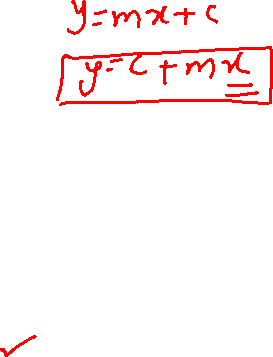 y=mx+c
y=c+mx